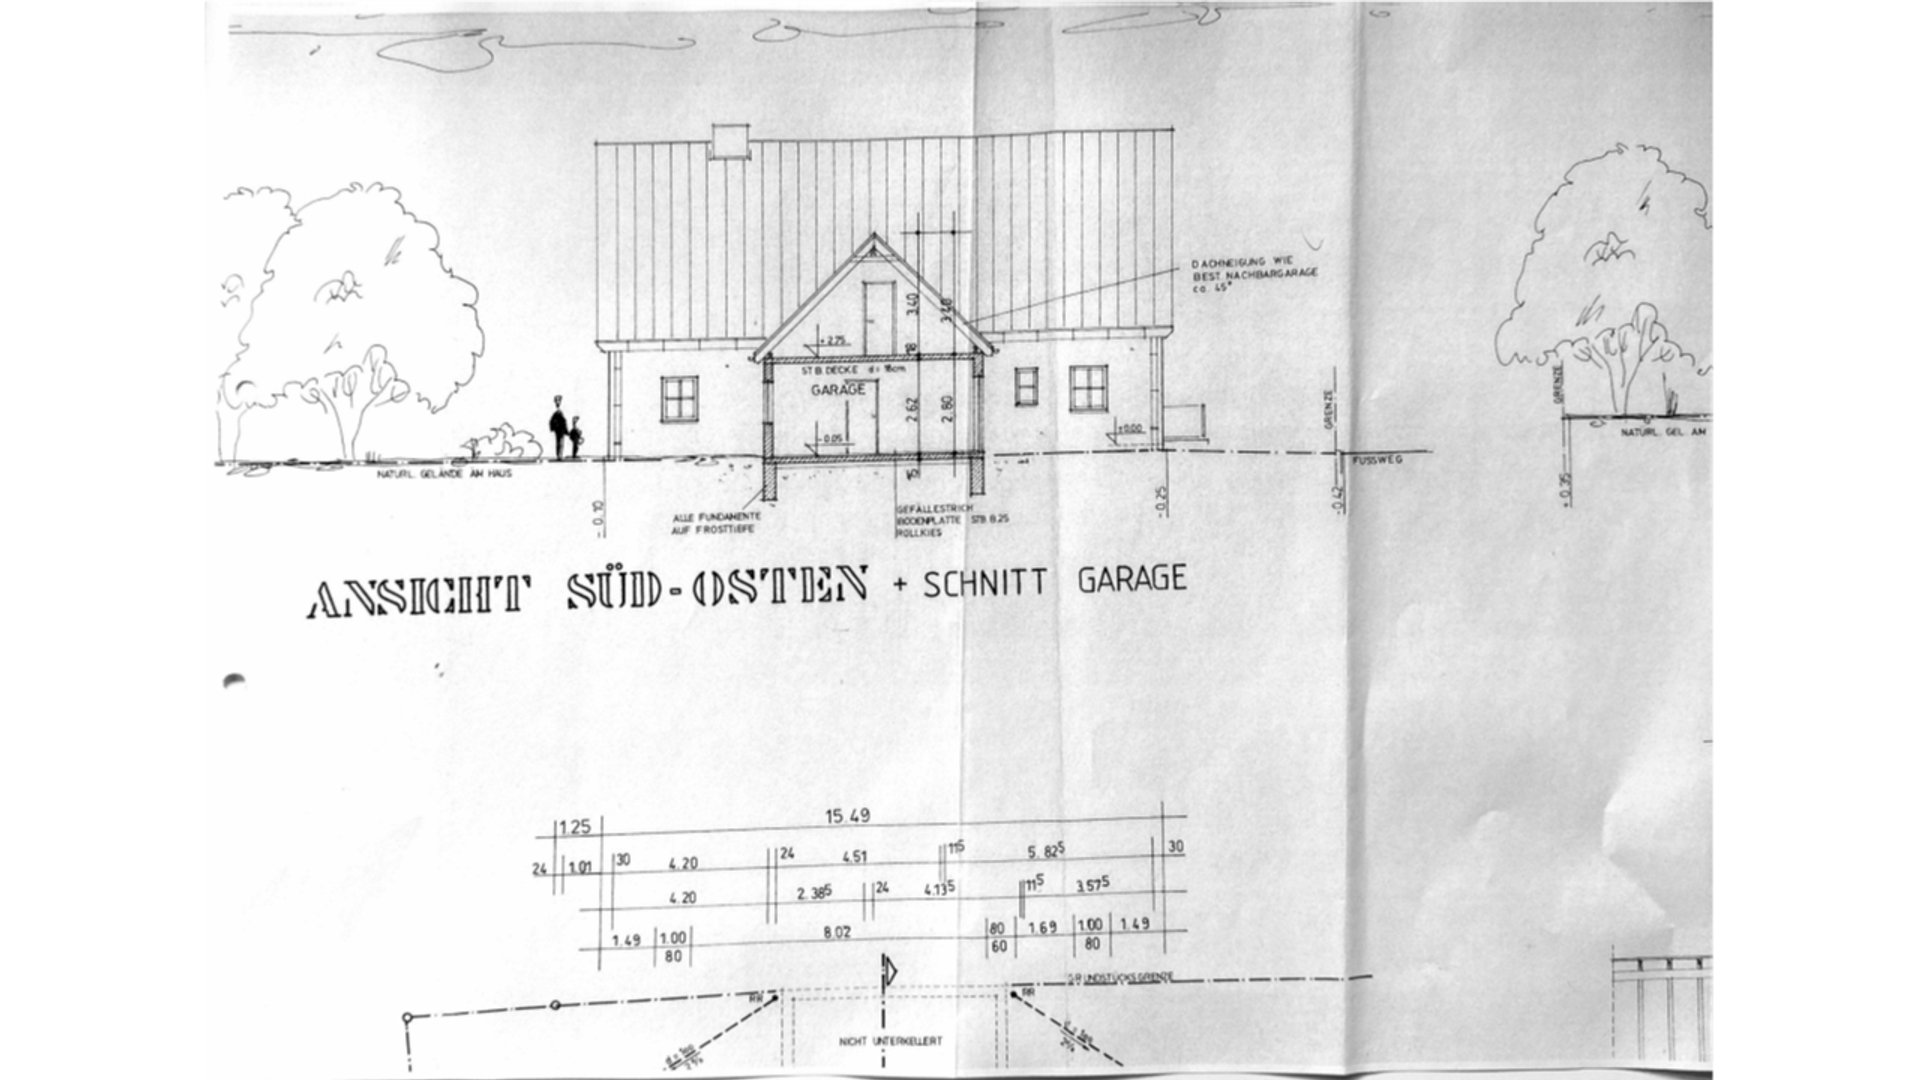 DACHNEIGUNG WIE
BEST. NACHBARGARAGE
ca. 45°
3.40
3.40
+2.75
18
STB. DECKE d= 18cm
GARAGE
2.62
2.80
-0.05
±0.00
15
GRENZE
GRENZE
NATÜRL. GELÄNDE AM HAUS
FUSSWEG
NATÜRL. GEL. AM
-0.10
-0.25
-0.42
+0.35
ALLE FUNDAMENTE
AUF FROSTTIEFE
GEFÄLLESTRICH
BODENPLATTE STB B.25
ROLLKIES
ANSICHT SÜD-OSTEN + SCHNITT GARAGE
1.25 15.49
24 1.01 30 4.20 24 4.51 11⁵ 5.82⁵ 30
4.20 2.38⁵ 24 4.13⁵ 11⁵ 3.57⁵
1.49 1.00 8.02 80 1.69 1.00 1.49
80 60 80
GRUNDSTÜCKSGRENZE
RR RR
NICHT UNTERKELLERT